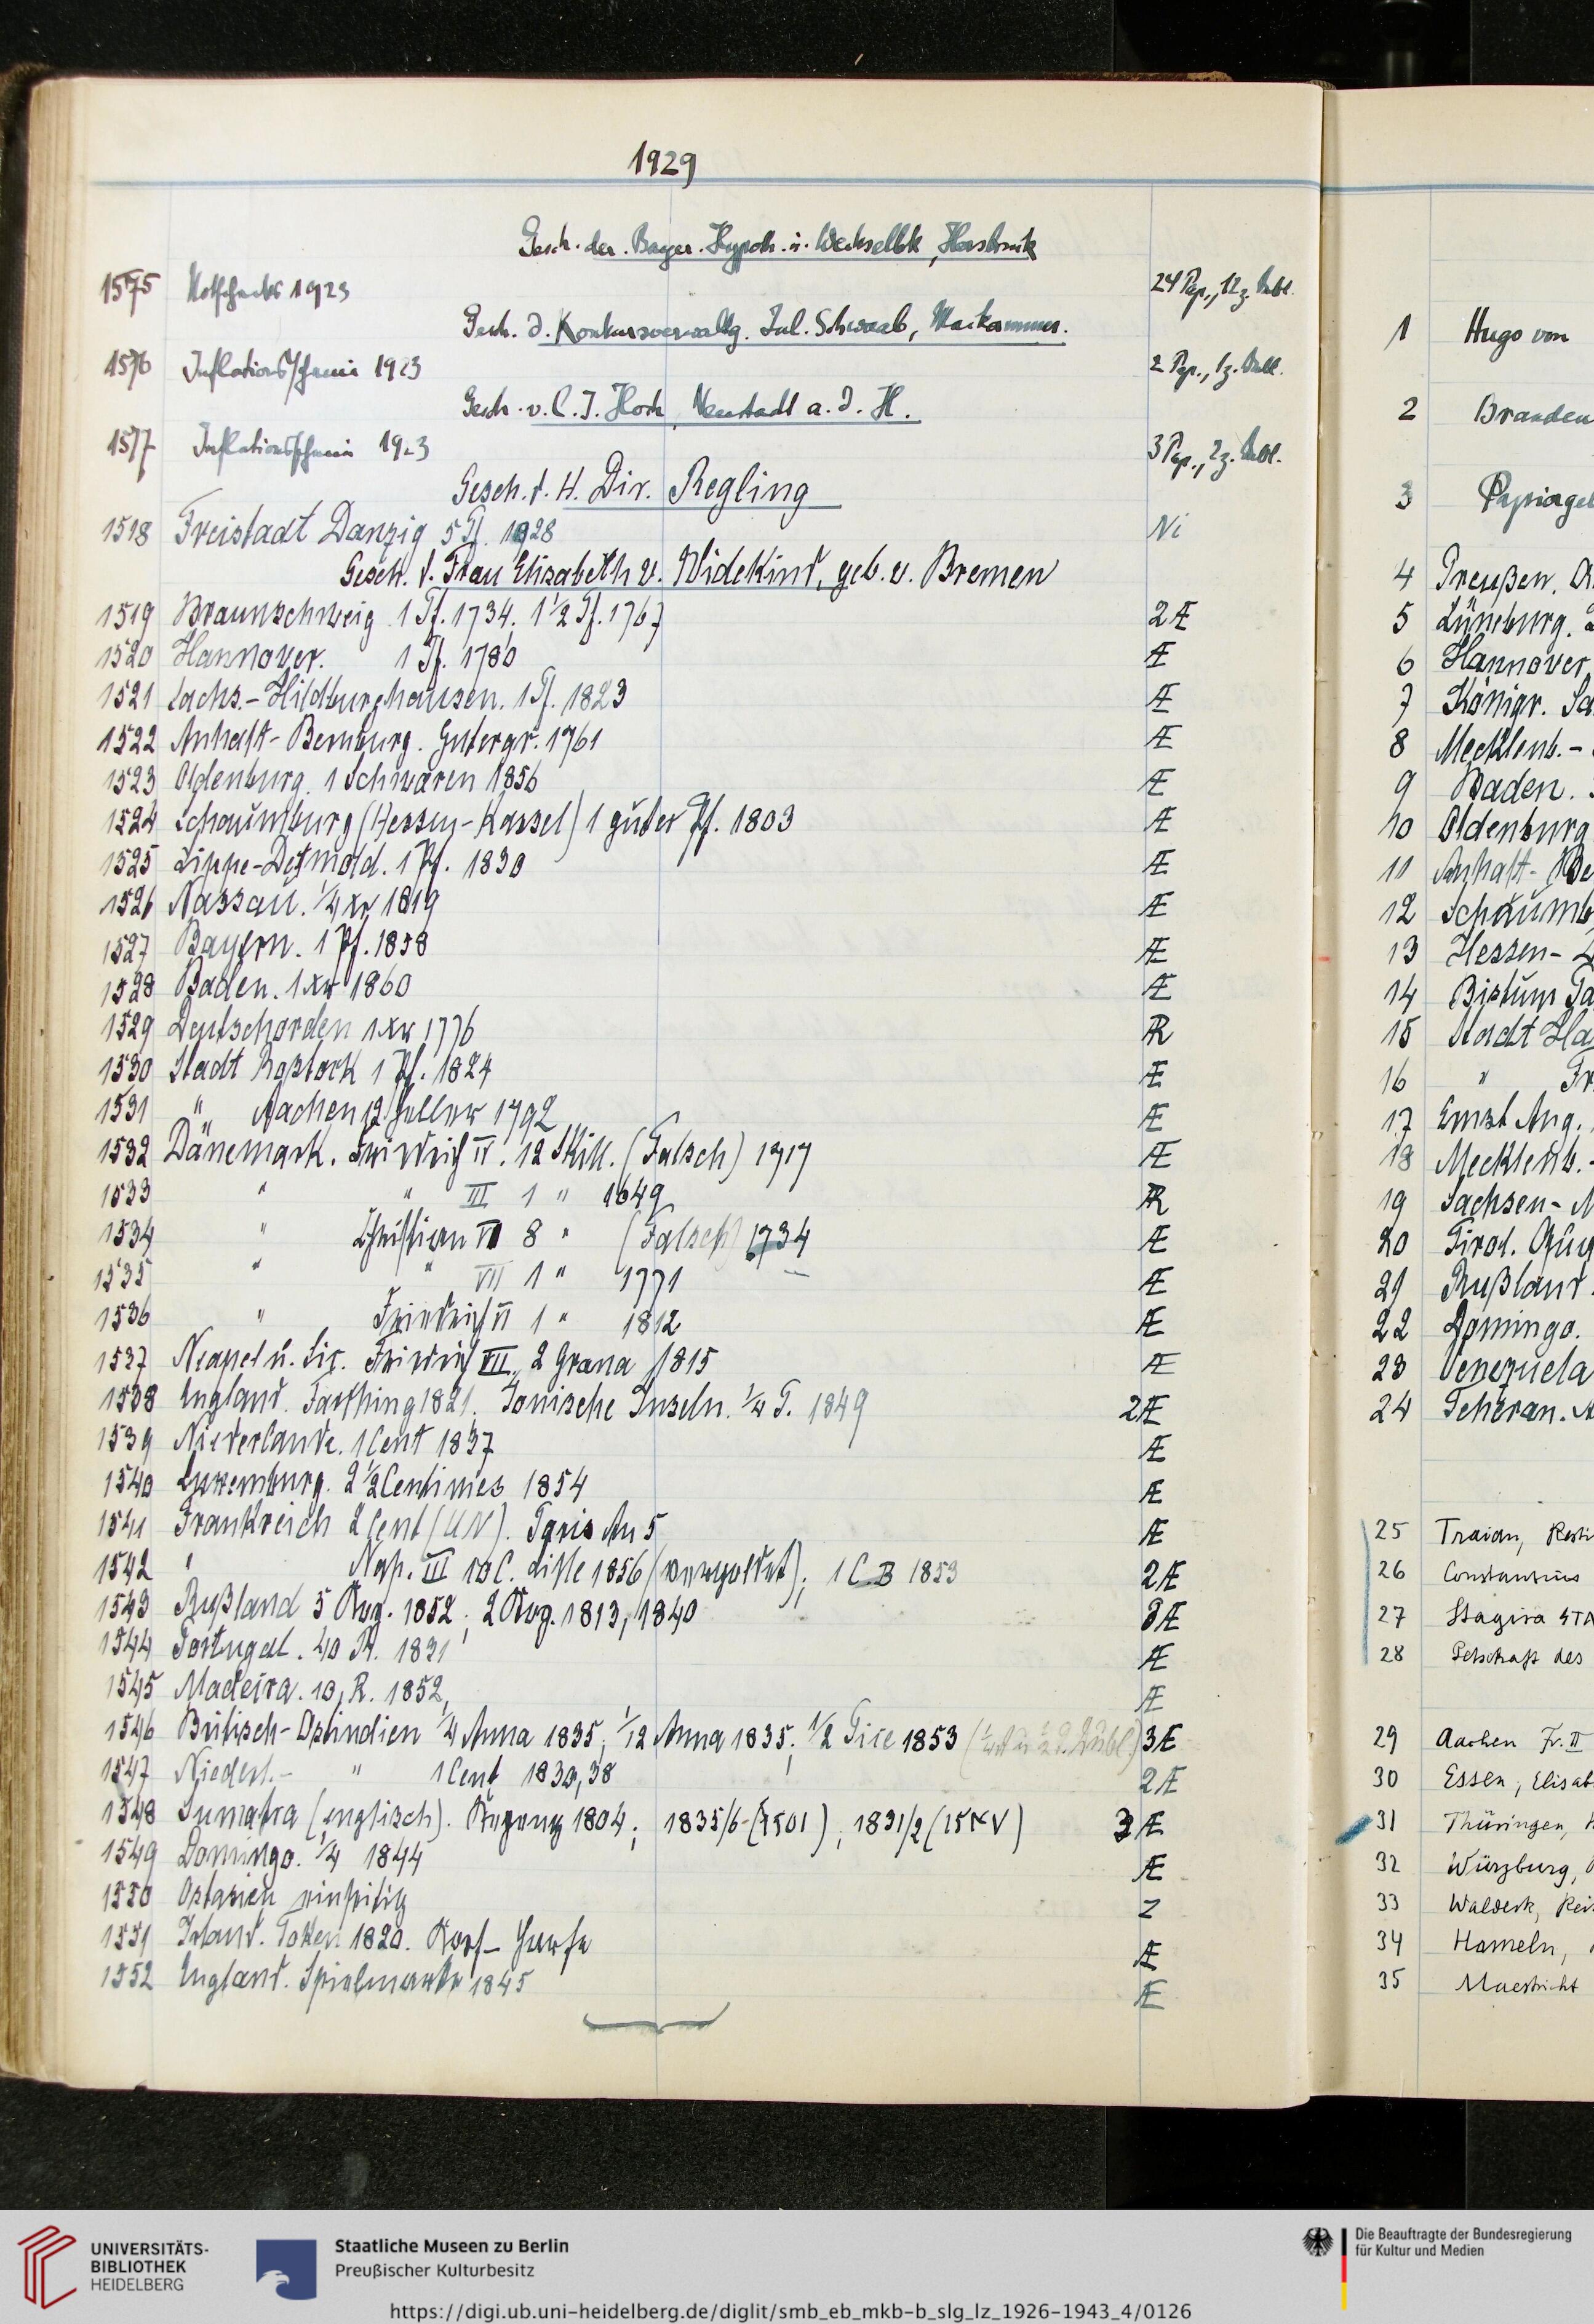 1929
Gesch. der Bayer. Hypoth. u. Wechselbk, Hersbruck
1575 Notschecks 1923 24 Pap., 12 z. Dubl.
Gesch. d. Konkursverwaltg. Jul. Schwaab, Maikammer.
1576 Inflationsschein 1923 2 Pap., 1 z. Dubl.
Gesch. v. C. J. Hoch, Neustadt a. d. H.
1577 Inflationsschein 1923 3 Pap., 2 z. Dubl.
Gesch. d. H. Dir. Regling
1518 Freistaat Danzig 5 Pf. 1928 Ni
Gesch. d. Frau Elisabeth v. Widekind, geb. v. Bremen
1519 Braunschweig 1 Pf. 1734. 1 1/2 Pf. 1767 2 Æ
1520 Hannover. 1 Pf. 1780 Æ
1521 Sachs.-Hildburghausen. 1 Pf. 1823 Æ
1522 Anhalt-Bernburg. Gutergr. 1761 Æ
1523 Oldenburg. 1 Schwaren 1856 Æ
1524 Schaumburg (Hessen-Kassel) 1 guter Pf. 1803 Æ
1525 Lippe-Detmold. 1 Pf. 1830 Æ
1526 Nassau. 1/4 xr 1819 Æ
1527 Bayern. 1 Pf. 1858 Æ
1528 Baden. 1 xr 1860 Æ
1529 Deutschorden 1 xr 1776 AR
1530 Stadt Rostock 1 Pf. 1824 Æ
1531 " Aachen 12 Heller 1792 Æ
1532 Dänemark. Friedrich IV. 12 Skill. (Falsch) 1717 Æ
1533 " " III 1 " 1649 AR
1534 " Christian VI 8 " (Falsch) 1734 Æ
1535 " " VII 1 " 1771 Æ
1536 " Friedrich VI 1 " 1812 Æ
1537 Neapel u. Siz. Friedrich VII. 2 Grana 1815 Æ
1538 England. Farthing 1821. Ionische Inseln. 1/4 P. 1849 2 Æ
1539 Niederlande. 1 Cent 1837 Æ
1540 Luxemburg. 2 1/2 Centimes 1854 Æ
1541 Frankreich 2 Cent (UN). Paris An 5 Æ
1542 " Nap. III 10 C. Lille 1856 (vergoldet); 1 C B 1853 2 Æ
1543 Rußland 5 Kop. 1852; 2 Kop. 1813, 1840 3 Æ
1544 Portugal. 40 R. 1831 Æ
1545 Madeira. 10 R. 1852 Æ
1546 Britisch-Ostindien 1/4 Anna 1835; 1/12 Anna 1835; 1/2 Pice 1853 3 Æ
1547 Niederl.- " 1 Cent 1834, 38 2 Æ
1548 Sumatra (englisch). Kepang 1804; 1835/6 ; 1831/2 3 Æ
1549 Domingo. 1/4 1844 Æ
1550 Ostasien einseitig Z
1551 Irland. Token 1820. Kopf – Harfe Æ
1552 England. Spielmarke 1845 Æ
1 Hugo von
2 Branden
3 Papiergel
4 Preußen.
5 Lüneburg.
6 Hannover
7 Königr. Sa
8 Mecklenb.-
9 Baden.
10 Oldenburg
11 Anhalt-Be
12 Schaumb
13 Hessen-
14 Bistum Pa
15 Stadt Ha
16 " Fr
17 Ernst Aug.
18 Mecklenb.-
19 Sachsen-M
20 Tirol.
21 Rußland.
22 Domingo.
23 Venezuela
24 Teheran.
25 Traian, Resti
26 Constantius
27 Stagira
28 Petschaft des
29 Aachen Fr. II
30 Essen, Elisab
31 Thüringen,
32 Würzburg,
33 Waldeck, Rei
34 Hameln,
35 Maestricht
UNIVERSITÄTS-
BIBLIOTHEK
HEIDELBERG
Staatliche Museen zu Berlin
Preußischer Kulturbesitz
Die Beauftragte der Bundesregierung
für Kultur und Medien
https://digi.ub.uni-heidelberg.de/diglit/smb_eb_mkb-b_slg_lz_1926-1943_4/0126